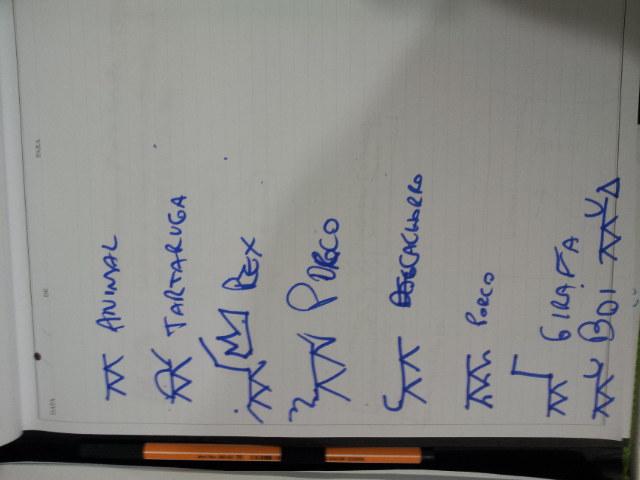 DATA DE PARA
ANIMAL
TARTARUGA
REX
PORCO
CACHORRO
PORCO
GIRAFA
BOI